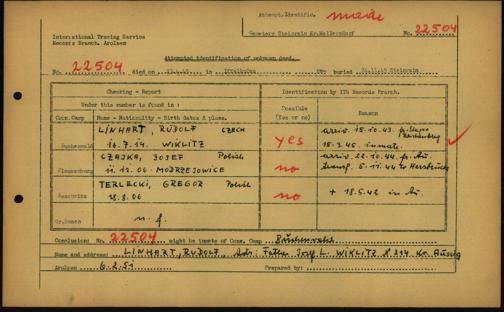 Attempt.Identific. made
International Tracing Service
Records Branch, Arolsen
Cemetery Steinrain Kr.Mallersdorf No. 22504
Attempted identification of unknown dead.
No. 22504 died on in or buried Steinrain
Checking - Report
Identification by ITS Records Branch.
Under this number is found in:
Possible
(yes or no)
Reason
Conc.Camp
Name - Nationality - Birth dates & place.
LINHART, RUDOLF CZECH
Buchenwald 14.7.14 WIKLITZ
yes
arriv. 15.10.43
15.3.45. inmate.
CZAJKA, JOSEF Polish
Flossenburg 11.12.06 MODRZEJOWICE
no
arriv. 22.10.44 fr. Au.
transf. 5.11.44 to Hersbruck
TERLECKI, GREGOR Polish
Auschwitz 18.8.06
no
+ 18.5.42 in Au.
Gr.Rosen n. f.
Conclusion: No. 22504 might be inmate of Conc. Camp Buchenwald
Name and address: LINHART, RUDOLF, Adr: Father Josef L. WIKLITZ 214 Kr. Aussig
Arolsen 6.2.51 Prepared by: